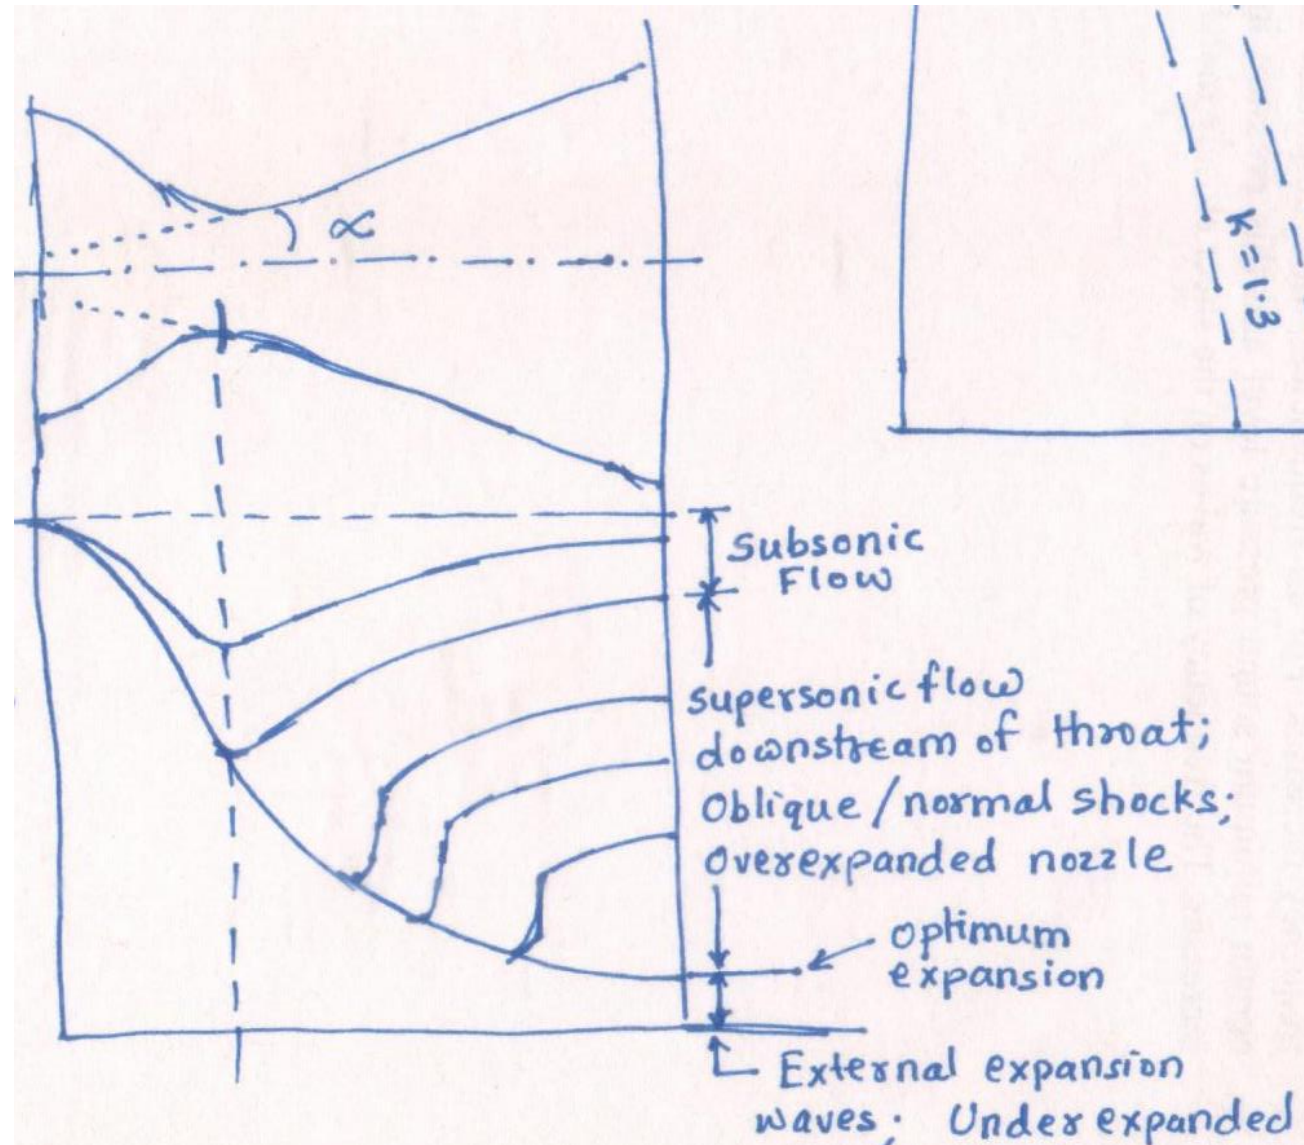 α
K = 1.3
Subsonic
Flow
supersonic flow
downstream of throat;
Oblique / normal shocks;
overexpanded nozzle
optimum
expansion
External expansion
waves; Under expanded